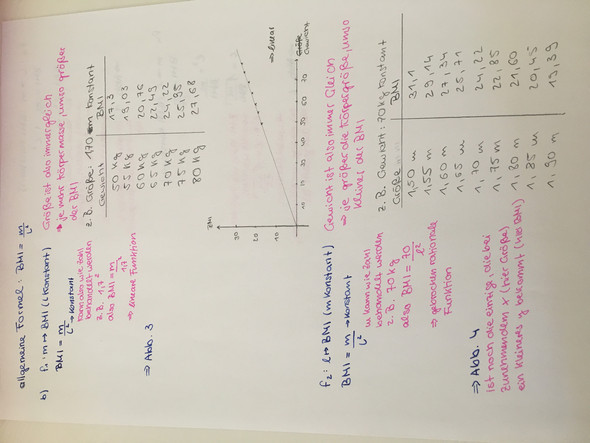 allgemeine Formel: BMI = m/l²
b) f₁: m ↦ BMI (l konstant)
BMI = m/l² → konstant
kann also wie Zahl
behandelt werden
z. B. 1,7²
also BMI = m/1,7²
⇒ lineare Funktion
⇒ Abb. 3
Größe ist also immer gleich
→ je mehr Körpermasse, umso größer
der BMI
z. B. Größe: 170 cm konstant
Gewicht BMI
50 kg 17,3
55 kg 19,03
60 kg 20,76
65 kg 22,49
70 kg 24,22
75 kg 25,95
80 kg 27,68
BMI
30
20
10
Größe
Gewicht
⇒ linear
f₂: l ↦ BMI (m konstant)
BMI = m/l² → konstant
m kann wie Zahl
behandelt werden
z. B. 70 kg
also BMI = 70/l²
⇒ gebrochen rationale
Funktion
⇒ Abb. 4
ist noch die einzige, die bei
zunehmendem x (hier Größe)
ein kleineres y bekommt (hier BMI)
Gewicht ist also immer Gleich
⇒ je größer die Körpergröße, umso
kleiner der BMI
z. B. Gewicht: 70 kg konstant
Größe BMI
1,50 m 31,1
1,55 m 29,14
1,60 m 27,34
1,65 m 25,71
1,70 m 24,22
1,75 m 22,85
1,80 m 21,60
1,85 m 20,45
1,90 m 19,39